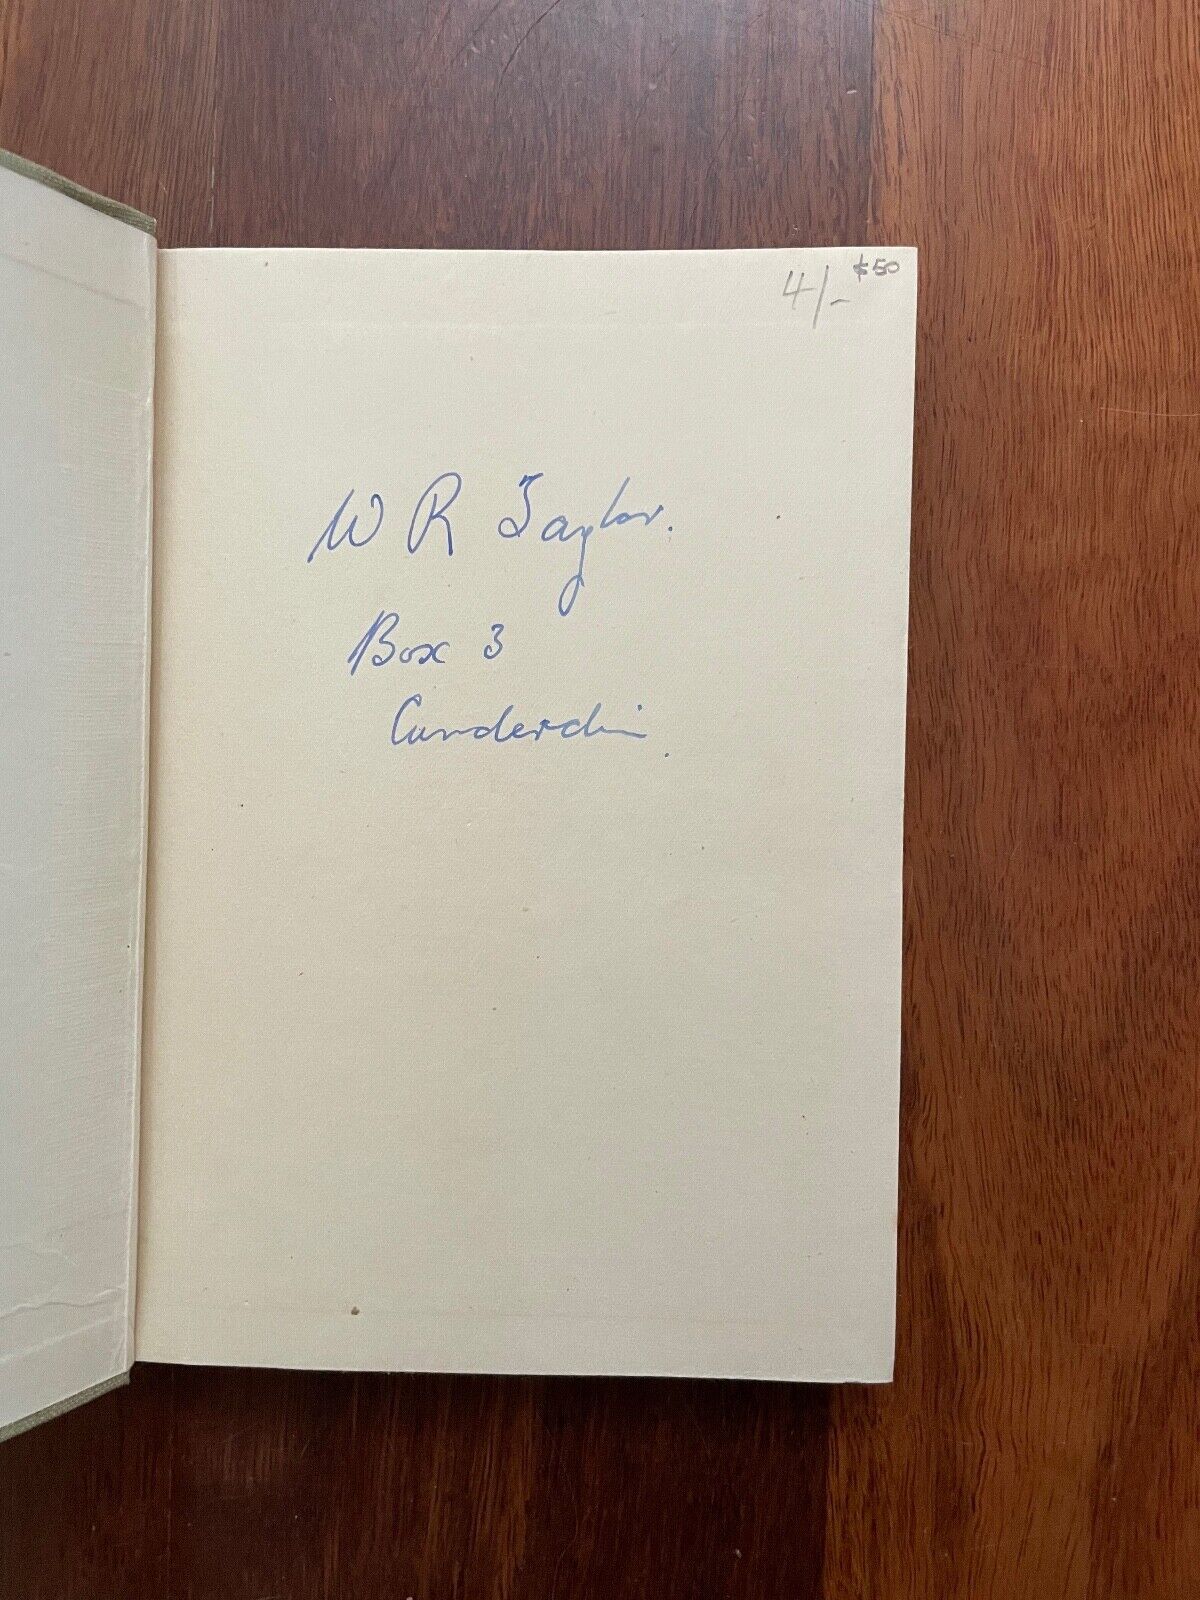 4/- $50
W R Taylor.
Box 3
Cunderdin.